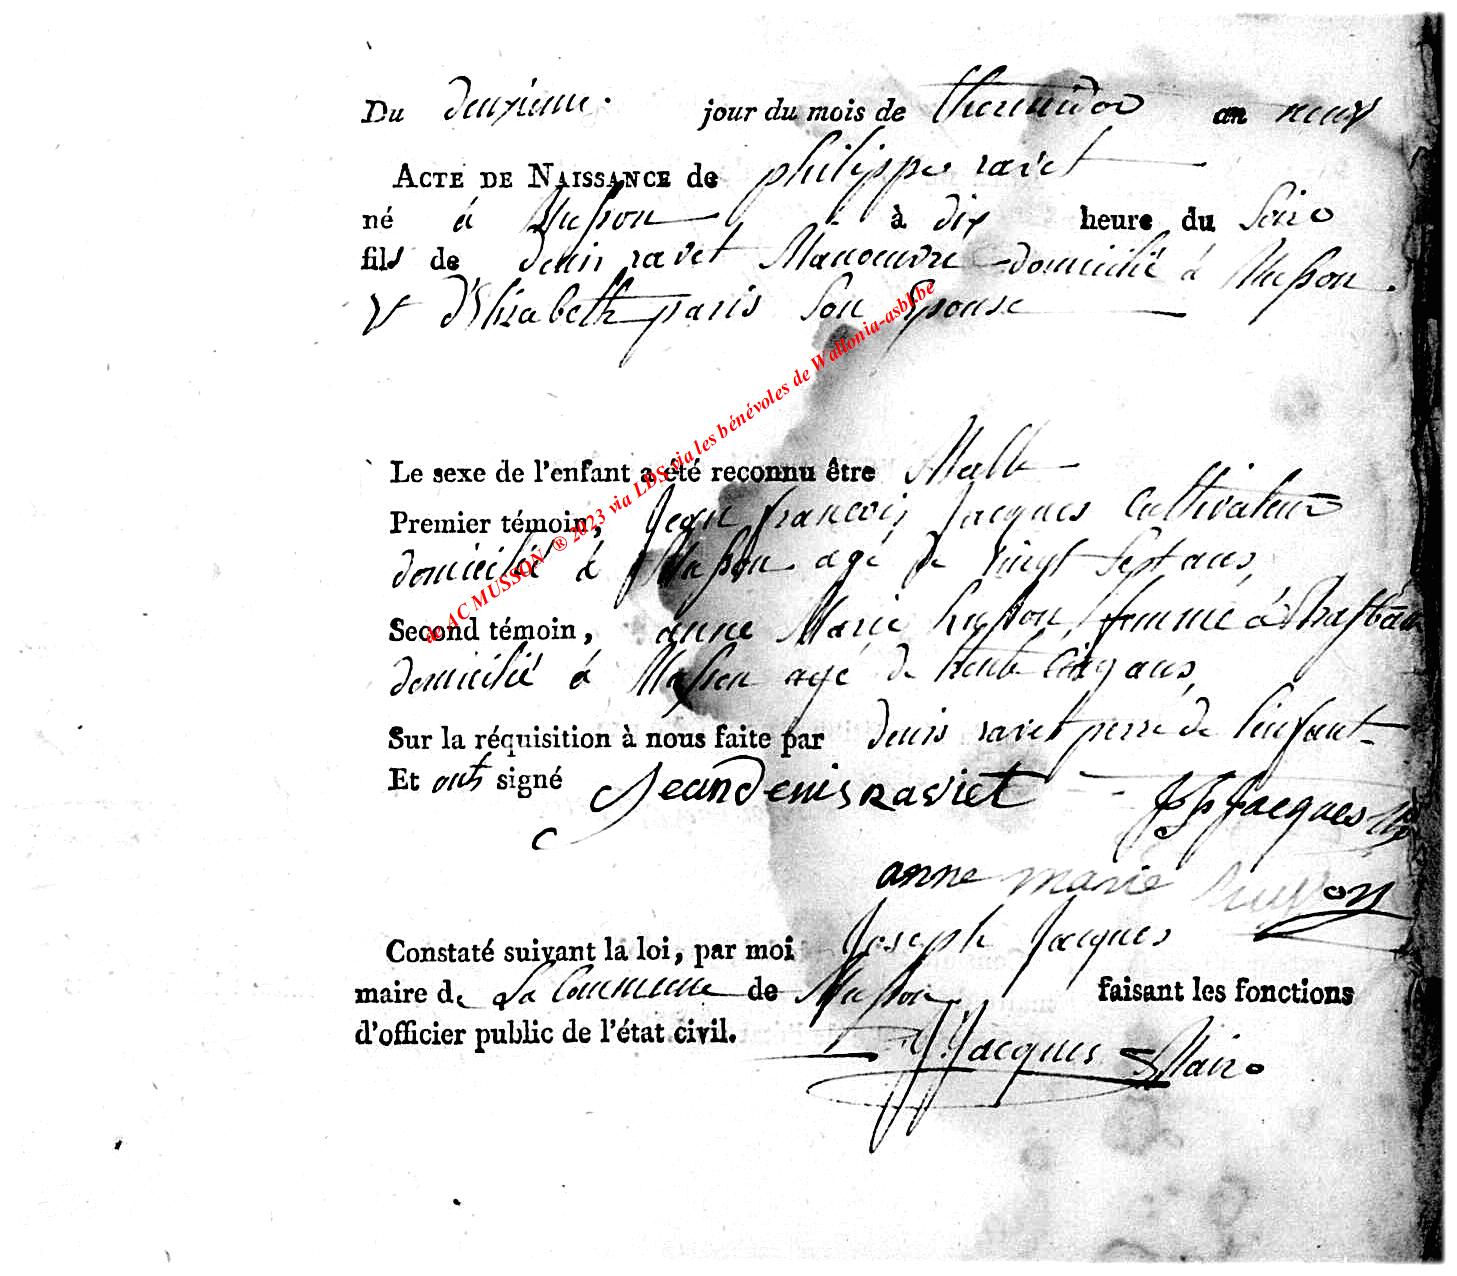 Du deuxieme jour du mois de thermidor an neuf
ACTE DE NAISSANCE de philippe ravet
né à Musson à dix heure du Soir
fils de denis ravet Manoeuvre domicilié à Musson
et d'Elizabeth paris Son Epouse
Le sexe de l'enfant a été reconnu être Malle
Premier témoin, Jean francois Jacques Cultivateur
domicilié à Musson agé de vingt Sept ans,
Second témoin, anne Marie husson femme à
domicilié à Musson agé de trente Cinq ans,
Sur la réquisition à nous faite par denis ravet perre de l'enfant
Et ont signé Jean Denis Raviet Jf Jacques
anne marie husson
Constaté suivant la loi, par moi Joseph Jacques
maire de La Commune de Musson faisant les fonctions
d'officier public de l'état civil.
J. Jacques Maire
de AC MUSSON ® 2023 via LDS via les bénévoles de Wallonia-asbl.be